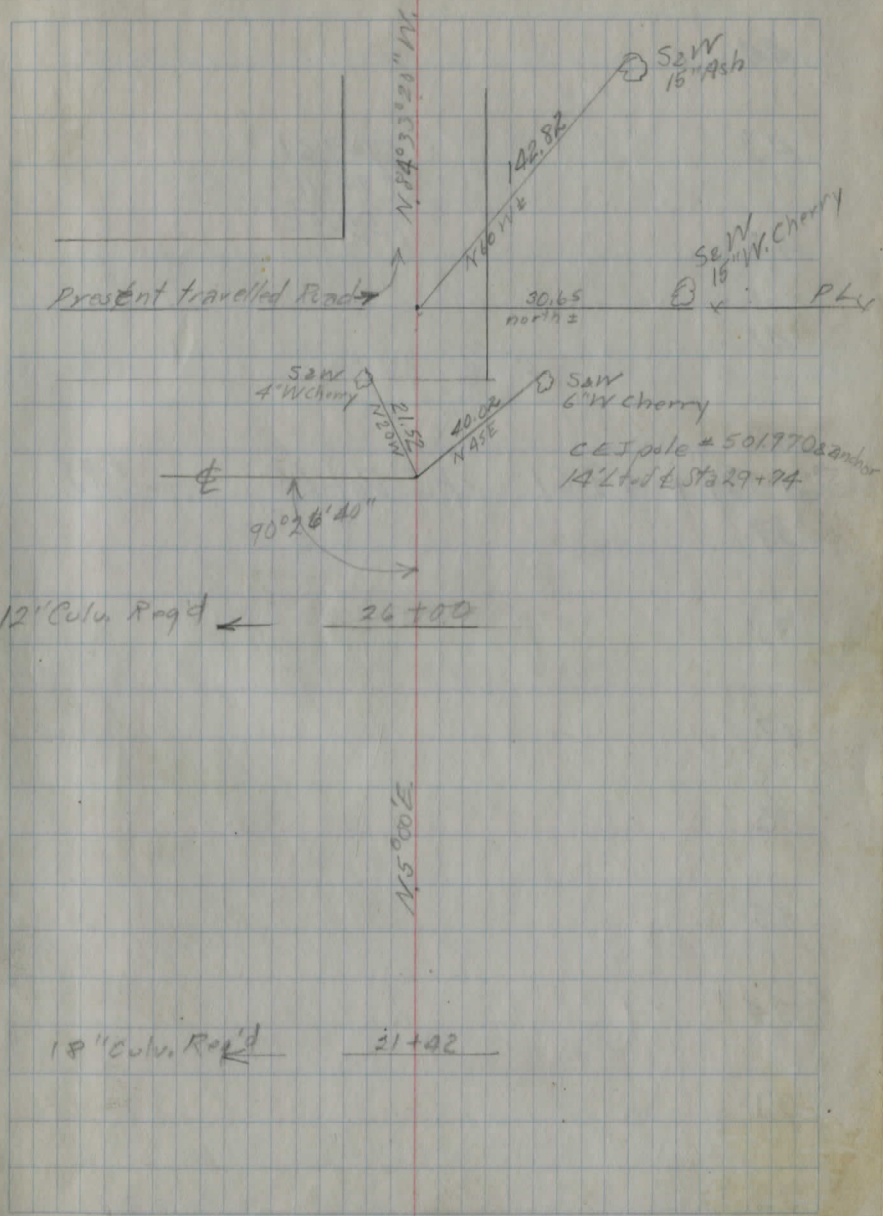 N84°33'20" W.
S&W
15" Ash
142.82
N60W±
S&W
15" W. Cherry
Present travelled Road
30.65
north ±
PL
S&W
4" W Cherry
S&W
6" W Cherry
21.52
N20W
40.02
N45E
CEI pole # 501970 & anchor
14' Lt of ℄ Sta 29+74
℄
90°26'40"
12" Culv. Req'd
26+00
N5°00'E
18" Culv. Req'd
21+42